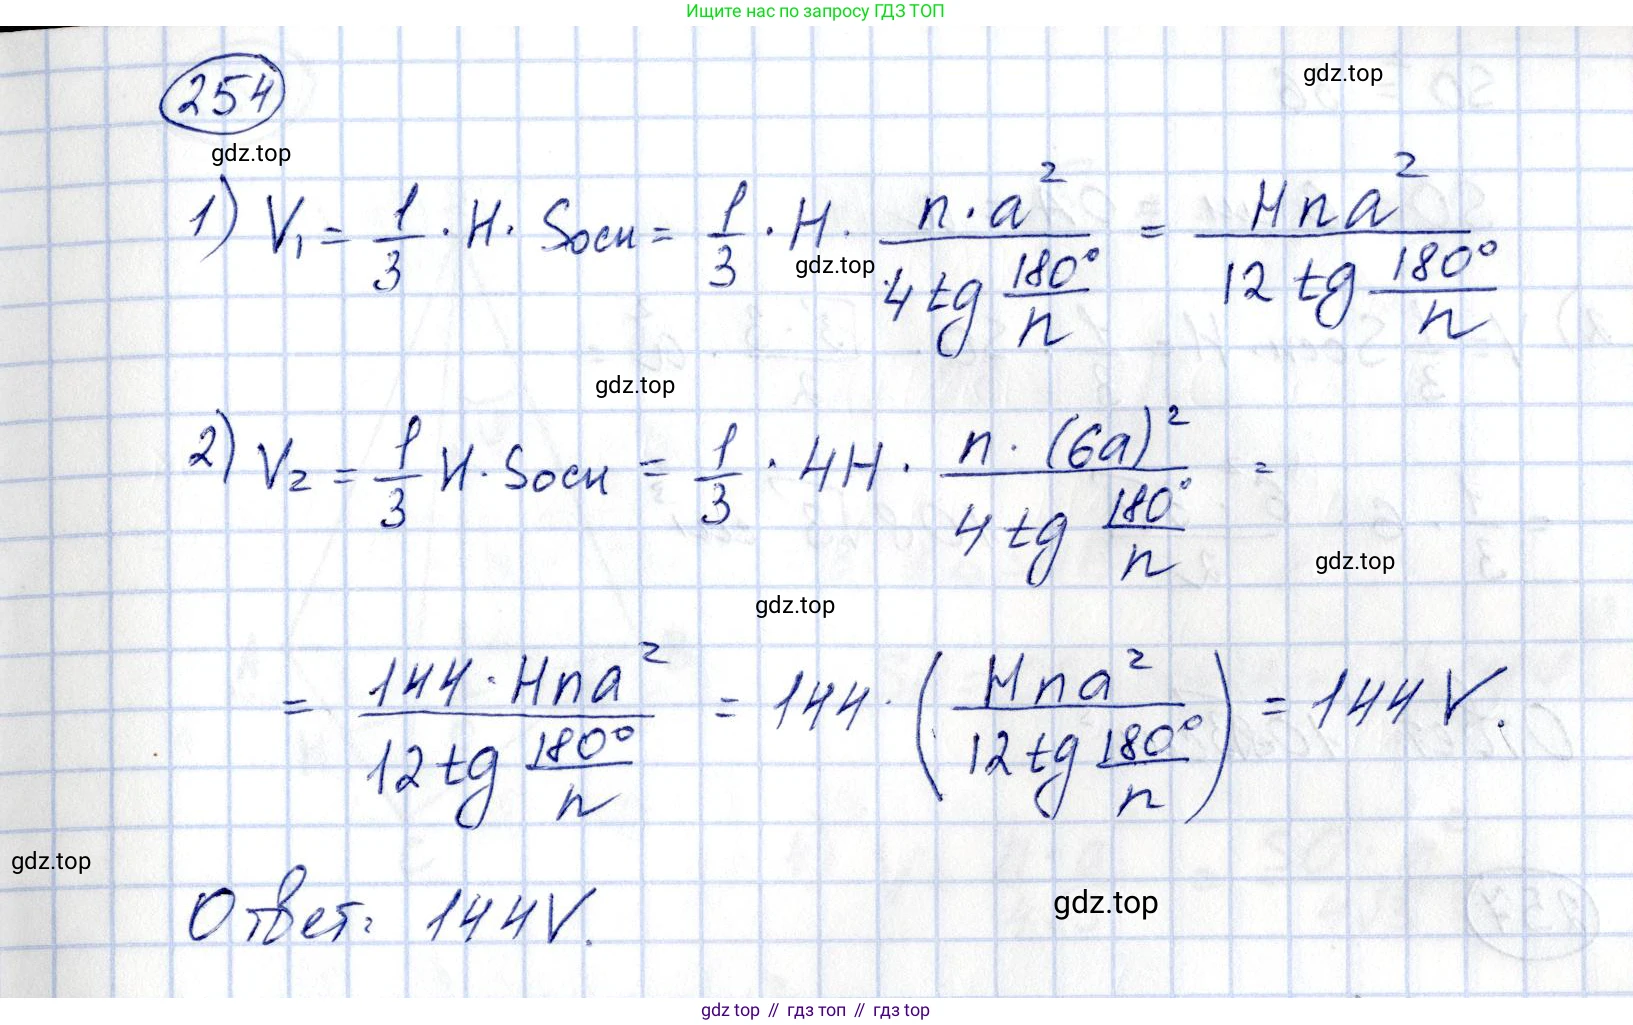 Ищите нас по запросу ГДЗ ТОП
gdz.top
254
gdz.top
1) V₁ = 1/3 · H · Sосн = 1/3 · H · (n · a²)/(4 tg 180°/n) = (Hna²)/(12 tg 180°/n)
gdz.top
gdz.top
2) V₂ = 1/3 H · Sосн = 1/3 · 4H · (n · (6a)²)/(4 tg 180°/n) =
gdz.top
gdz.top
= (144 · Hna²)/(12 tg 180°/n) = 144 · ((Hna²)/(12 tg 180°/n)) = 144 V.
gdz.top
Ответ: 144V.
gdz.top
gdz top // гдз топ // гдз top